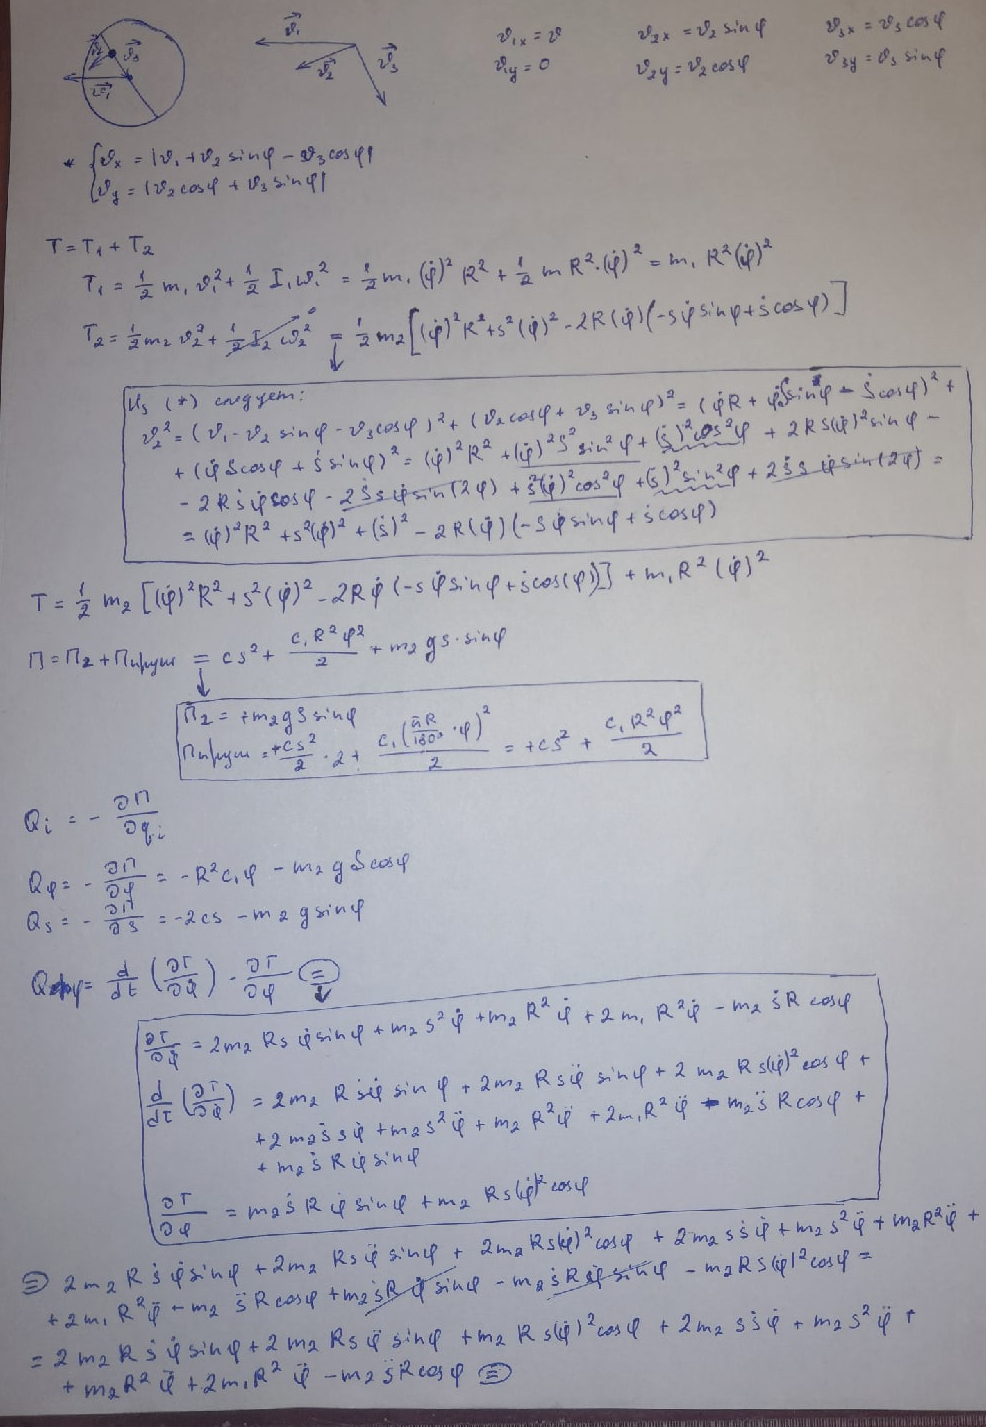 v⃗₁ v⃗₂ v⃗₃
v⃗₁ v⃗₂ v⃗₃
v₁ₓ = v v₂ₓ = v₂ sinφ v₃ₓ = v₃ cosφ
v₁y = 0 v₂y = v₂ cosφ v₃y = v₃ sinφ
* { vₓ = |v₁ + v₂ sinφ − v₃ cosφ|
vy = |v₂ cosφ + v₃ sinφ|
T = T₁ + T₂
T₁ = 1/2 m₁ v₁² + 1/2 I₁ω₁² = 1/2 m₁ (φ̇)² R² + 1/2 m R²·(φ̇)² = m₁ R² (φ̇)²
T₂ = 1/2 m₂ v₂² + 1/2 I₂ ω₂² = 1/2 m₂ [(φ̇)² R² + s² (φ̇)² − 2R (φ̇) (−sφ̇ sinφ + ṡ cosφ)]
Из (*) следует:
v₂² = (v₁ − v₂ sinφ − v₃ cosφ)² + (v₂ cosφ + v₃ sinφ)² = (φ̇R + φ̇ s sinφ − ṡ cosφ)² +
+ (φ̇ s cosφ + ṡ sinφ)² = (φ̇)² R² + (φ̇)² s² sin²φ + (ṡ)² cos²φ + 2Rs(φ̇)² sinφ −
− 2Rṡφ̇ cosφ − 2ṡsφ̇ sin(2φ) + s²(φ̇)² cos²φ + (ṡ)² sin²φ + 2ṡs φ̇ sin(2φ) =
= (φ̇)² R² + s²(φ̇)² + (ṡ)² − 2R(φ̇) (−sφ̇ sinφ + ṡ cosφ)
T = 1/2 m₂ [(φ̇)² R² + s² (φ̇)² − 2Rφ̇ (−sφ̇ sinφ + ṡ cos(φ))] + m₁R² (φ̇)²
П = П₂ + Ппруж = cs² + c₁R²φ²/2 + m₂ gs·sinφ
П₂ = +m₂gs sinφ
Ппруж = +cs²/2 · 2 + c₁(πR/180° · φ)²/2 = +cs² + c₁R²φ²/2
Qᵢ = − ∂П/∂qᵢ
Qφ = − ∂П/∂φ = −R²c₁φ − m₂ g s cosφ
Qs = − ∂П/∂s = −2cs − m₂ g sinφ
Qφ = d/dt (∂T/∂φ̇) − ∂T/∂φ =
∂T/∂φ̇ = 2m₂ Rs φ̇ sinφ + m₂ s² φ̇ + m₂ R² φ̇ + 2m₁ R²φ̇ − m₂ ṡR cosφ
d/dt (∂T/∂φ̇) = 2m₂ Rṡφ̇ sinφ + 2m₂ Rsφ̈ sinφ + 2m₂ Rs(φ̇)² cosφ +
+ 2m₂ṡsφ̇ + m₂s²φ̈ + m₂ R²φ̈ + 2m₁R²φ̈ − m₂s̈ R cosφ +
+ m₂ṡ R φ̇ sinφ
∂T/∂φ = m₂ṡ R φ̇ sinφ + m₂ Rs(φ̇)² cosφ
= 2m₂ R ṡ φ̇ sinφ + 2m₂ Rs φ̈ sinφ + 2m₂ Rs(φ̇)² cosφ + 2m₂ sṡφ̇ + m₂ s² φ̈ + m₂R² φ̈ +
+ 2m₁ R²φ̈ − m₂ s̈ R cosφ + m₂ṡR φ̇ sinφ − m₂ṡRφ̇ sinφ − m₂Rs(φ̇)² cosφ =
= 2m₂ R ṡ φ̇ sinφ + 2m₂ Rs φ̈ sinφ + m₂ Rs(φ̇)² cosφ + 2m₂ sṡφ̇ + m₂ s² φ̈ +
+ m₂R² φ̈ + 2m₁R² φ̈ − m₂s̈R cosφ =